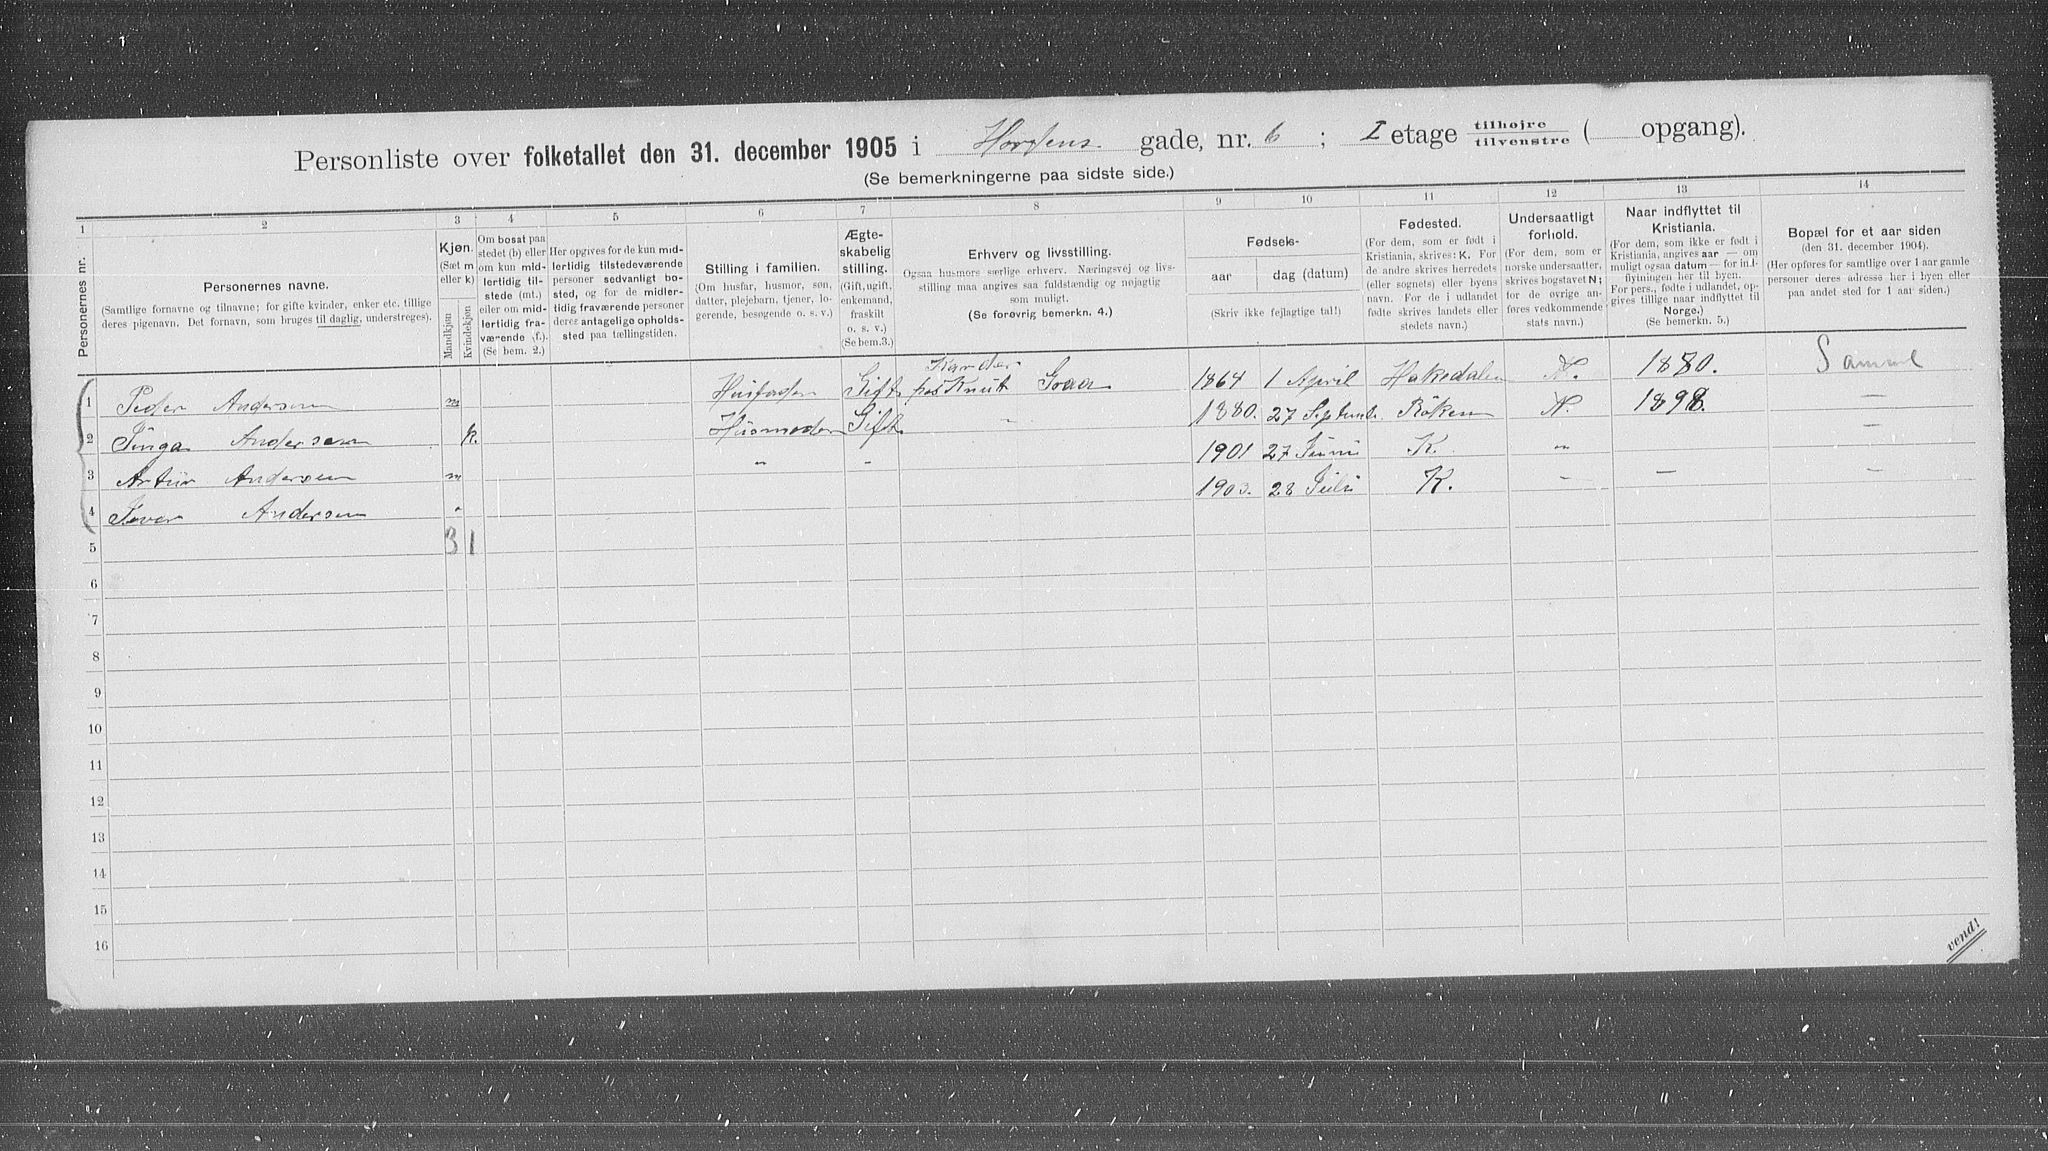 Personliste over folketallet den 31. december 1905 i Horgens gade, nr. 6 ; I etage tilhøjre tilvenstre ( opgang).
(Se bemerkningerne paa sidste side.)
1 2 3 4 5 6 7 8 9 10 11 12 13 14
Personernes nr.
Personernes navne.
(Samtlige fornavne og tilnavne; for gifte kvinder, enker etc. tillige
deres pigenavn. Det fornavn, som bruges til daglig, understreges).
Kjøn.
(Sæt m
eller k)
Mandkjøn
Kvindekjøn
Om bosat paa
stedet (b) eller
om kun mid-
lertidig til-
stede (mt.)
eller om mid-
lertidig fra-
værende (f.).
(Se bem. 2.)
Her opgives for de kun mid-
lertidig tilstedeværende
personer sedvanlig bo-
sted, og for de midler-
tidig fraværende personer
deres antagelige opholds-
sted paa tællingstiden.
Stilling i familien.
(Om husfar, husmor, søn,
datter, plejebarn, tjener, lo-
gerende, besøgende o. s. v.)
Ægte-
skabelig
stilling.
(Gift, ugift,
enkemand,
fraskilt
o. s. v.)
(Se bem.3.)
Erhverv og livsstilling.
Ogsaa husmors særlige erhverv. Næringsvej og livs-
stilling maa angives saa fuldstændig og nøjagtig
som muligt.
(Se forøvrig bemerkn. 4.)
Fødsels-
aar dag (datum)
(Skriv ikke fejlagtige tal!)
Fødested.
(For dem, som er født i
Kristiania, skrives: K. For
de andre skrives herredets
(eller sognets) eller byens
navn. For de i udlandet
fødte skrives landets eller
stedets navn.)
Undersaatligt
forhold.
(For dem, som er
norske undersaatter,
skrives bogstavet N;
for de øvrige an-
føres vedkommende
stats navn.)
Naar indflyttet til
Kristiania.
(For dem, som ikke er født i
Kristiania, angives aar — om
muligt ogsaa datum — for ind-
flyttningen her til byen.
For pers., fødte i udlandet, op-
gives tillige naar indflyttet til
Norge.)
(Se bemerkn. 5.)
Bopæl for et aar siden
(den 31. december 1904).
(Her opføres for samtlige over 1 aar gamle
personer deres adresse her i byen eller
paa andet sted for 1 aar siden.)
1 Peder Andersen m Husfader Gift Karder pas Knut Graa 1864 1 April Hakedalen N. 1880. Samme
2 Inga Andersen k. Husmoder Gift " 1880. 27 Septemb. Röken N. 1898. —
3 Artur Andersen m " " 1901 27 Juni K. " —
4 Ivar Andersen " 1903. 28 Juli K. — — —
5 3 1
6
7
8
9
10
11
12
13
14
15
16
vend!